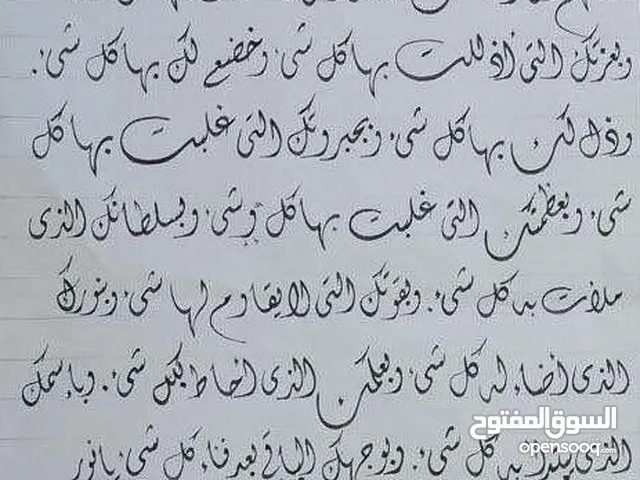 وبعزتك التى أذللت بها كل شىء وخضع لك بها كل شىء.
وذل لك بها كل شىء وبجبروتك التى غلبت بها كل
شىء وبعظمتك التى غلبت بها كل وشىء وبسلطانك الذى
ملات به كل شىء. وبقوتك التى لا يقاوم لها شىء وبنورك
الذى اضاء له كل شىء وبعلمك الذى احاط بكل شىء. وبإسمك
الذى يبدا به كل شىء. وبوجهك الباقى بعد فناء كل شىء يا نور
السوق المفتوح
opensooq.com